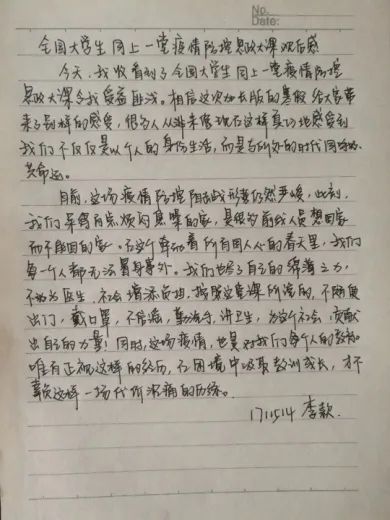 No.
Date:
全国大学生同上一堂疫情防控思政大课观后感
今天,我收看到了全国大学生同上一堂疫情防控
思政大课令我受益匪浅。相信这次加长版的寒假给大家带
来了别样的感受,很多人从来未像现在这样真切地感受到
我们不仅仅是以个人的身份生活,而是与所处的时代同呼吸,
共命运。
目前,这场疫情防控阻击战形势仍然严峻,此刻,
我们呆得有点烦闷焦噪的家,是很多前线人员想回家
而不能回的家。在这个牵动着所有国人心的春天里,我们
每一个人都无法置身事外。我们也尽了自己的绵薄之力,
不为医生,社会增添负担,按照这堂课所说的,不随便
出门,戴口罩,不信谣,勤洗手,讲卫生,为这个社会,贡献
出自己的力量!同时,这场疫情,也是对我们每个人的教育。
唯有正视这样的经历,在困境中吸取教训成长,才不
辜负这样一场代价沉痛的历练。
1711514 李款